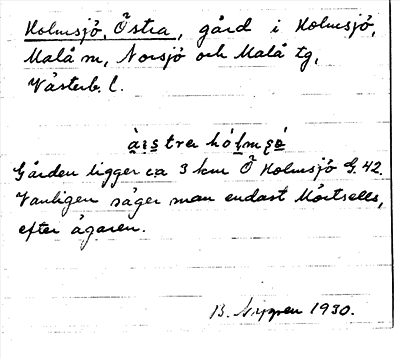 Holmsjö, Östra, gård i Holmsjö,
Malå sn, Norsjö och Malå tg,
Västerb. l.
Gården ligger ca 3 km Ö Holmsjö G. 42.
Vanligen säger man endast Mårtsells,
efter ägaren.
B. Nyppen 1930.